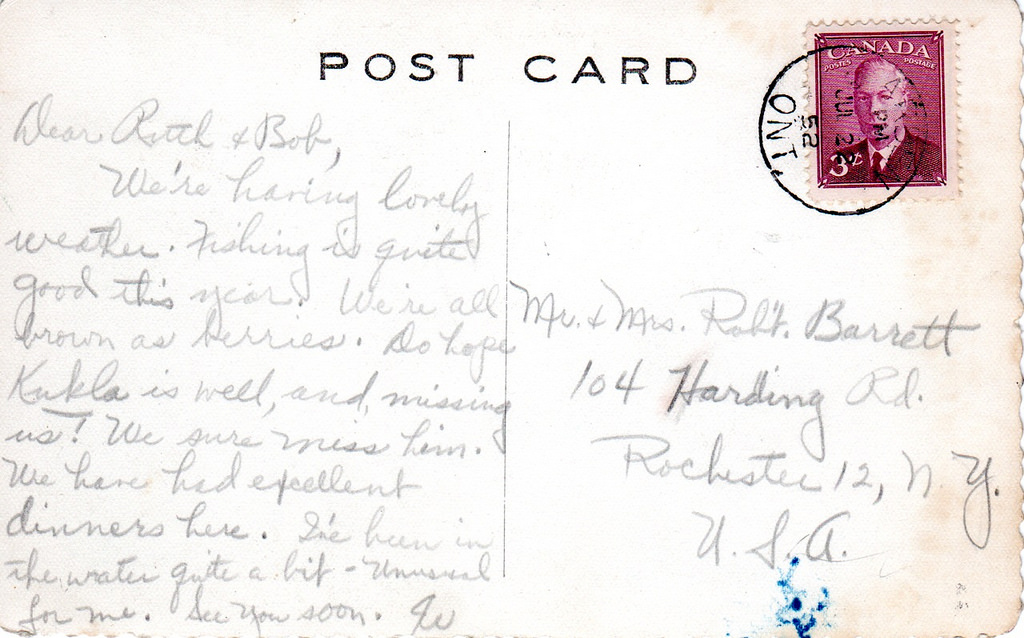 POST CARD
CANADA
POSTES POSTAGE
3¢
PM
JUL 22
52
ONT.
Dear Ruth & Bob,
We're having lovely
weather. Fishing is quite
good this year. We're all
brown as berries. Do hope
Kukla is well, and, missing
us! We sure miss him.
We have had excellent
dinners here. I've been in
the water quite a bit - Unusual
for me. See you soon.
Mr. & Mrs. Rob't. Barrett
104 Harding Rd.
Rochester 12, N. Y.
U. S. A.